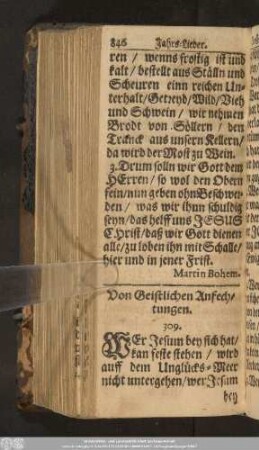 846 Jahrs-Lieder.
ren / wenns frostig ist und
kalt / bestellt aus Ställn und
Scheuren einn reichen Un-
terhalt / Getreyd / Wild / Vieh
und Schwein / wir nehmen
Brodt von Söllern / den
Tranck aus unsern Kellern /
da wird der Most zu Wein.
3. Drum solln wir Gott dem
HErren / so wol den Obern
sein / nun geben ohn Beschwer-
den / was wir ihm schuldig
seyn / das helff uns JESUS
CHrist / daß wir Gott dienen
alle / zu loben ihn mit Schalle /
hier und in jener Frist.
Martin Bohem.
Von Geistlichen Anfech-
tungen.
309.
WEr Jesum bey sich hat /
kan feste stehen / wird
auff dem Unglücks-Meer
nicht untergehen / wer Jesum
bey